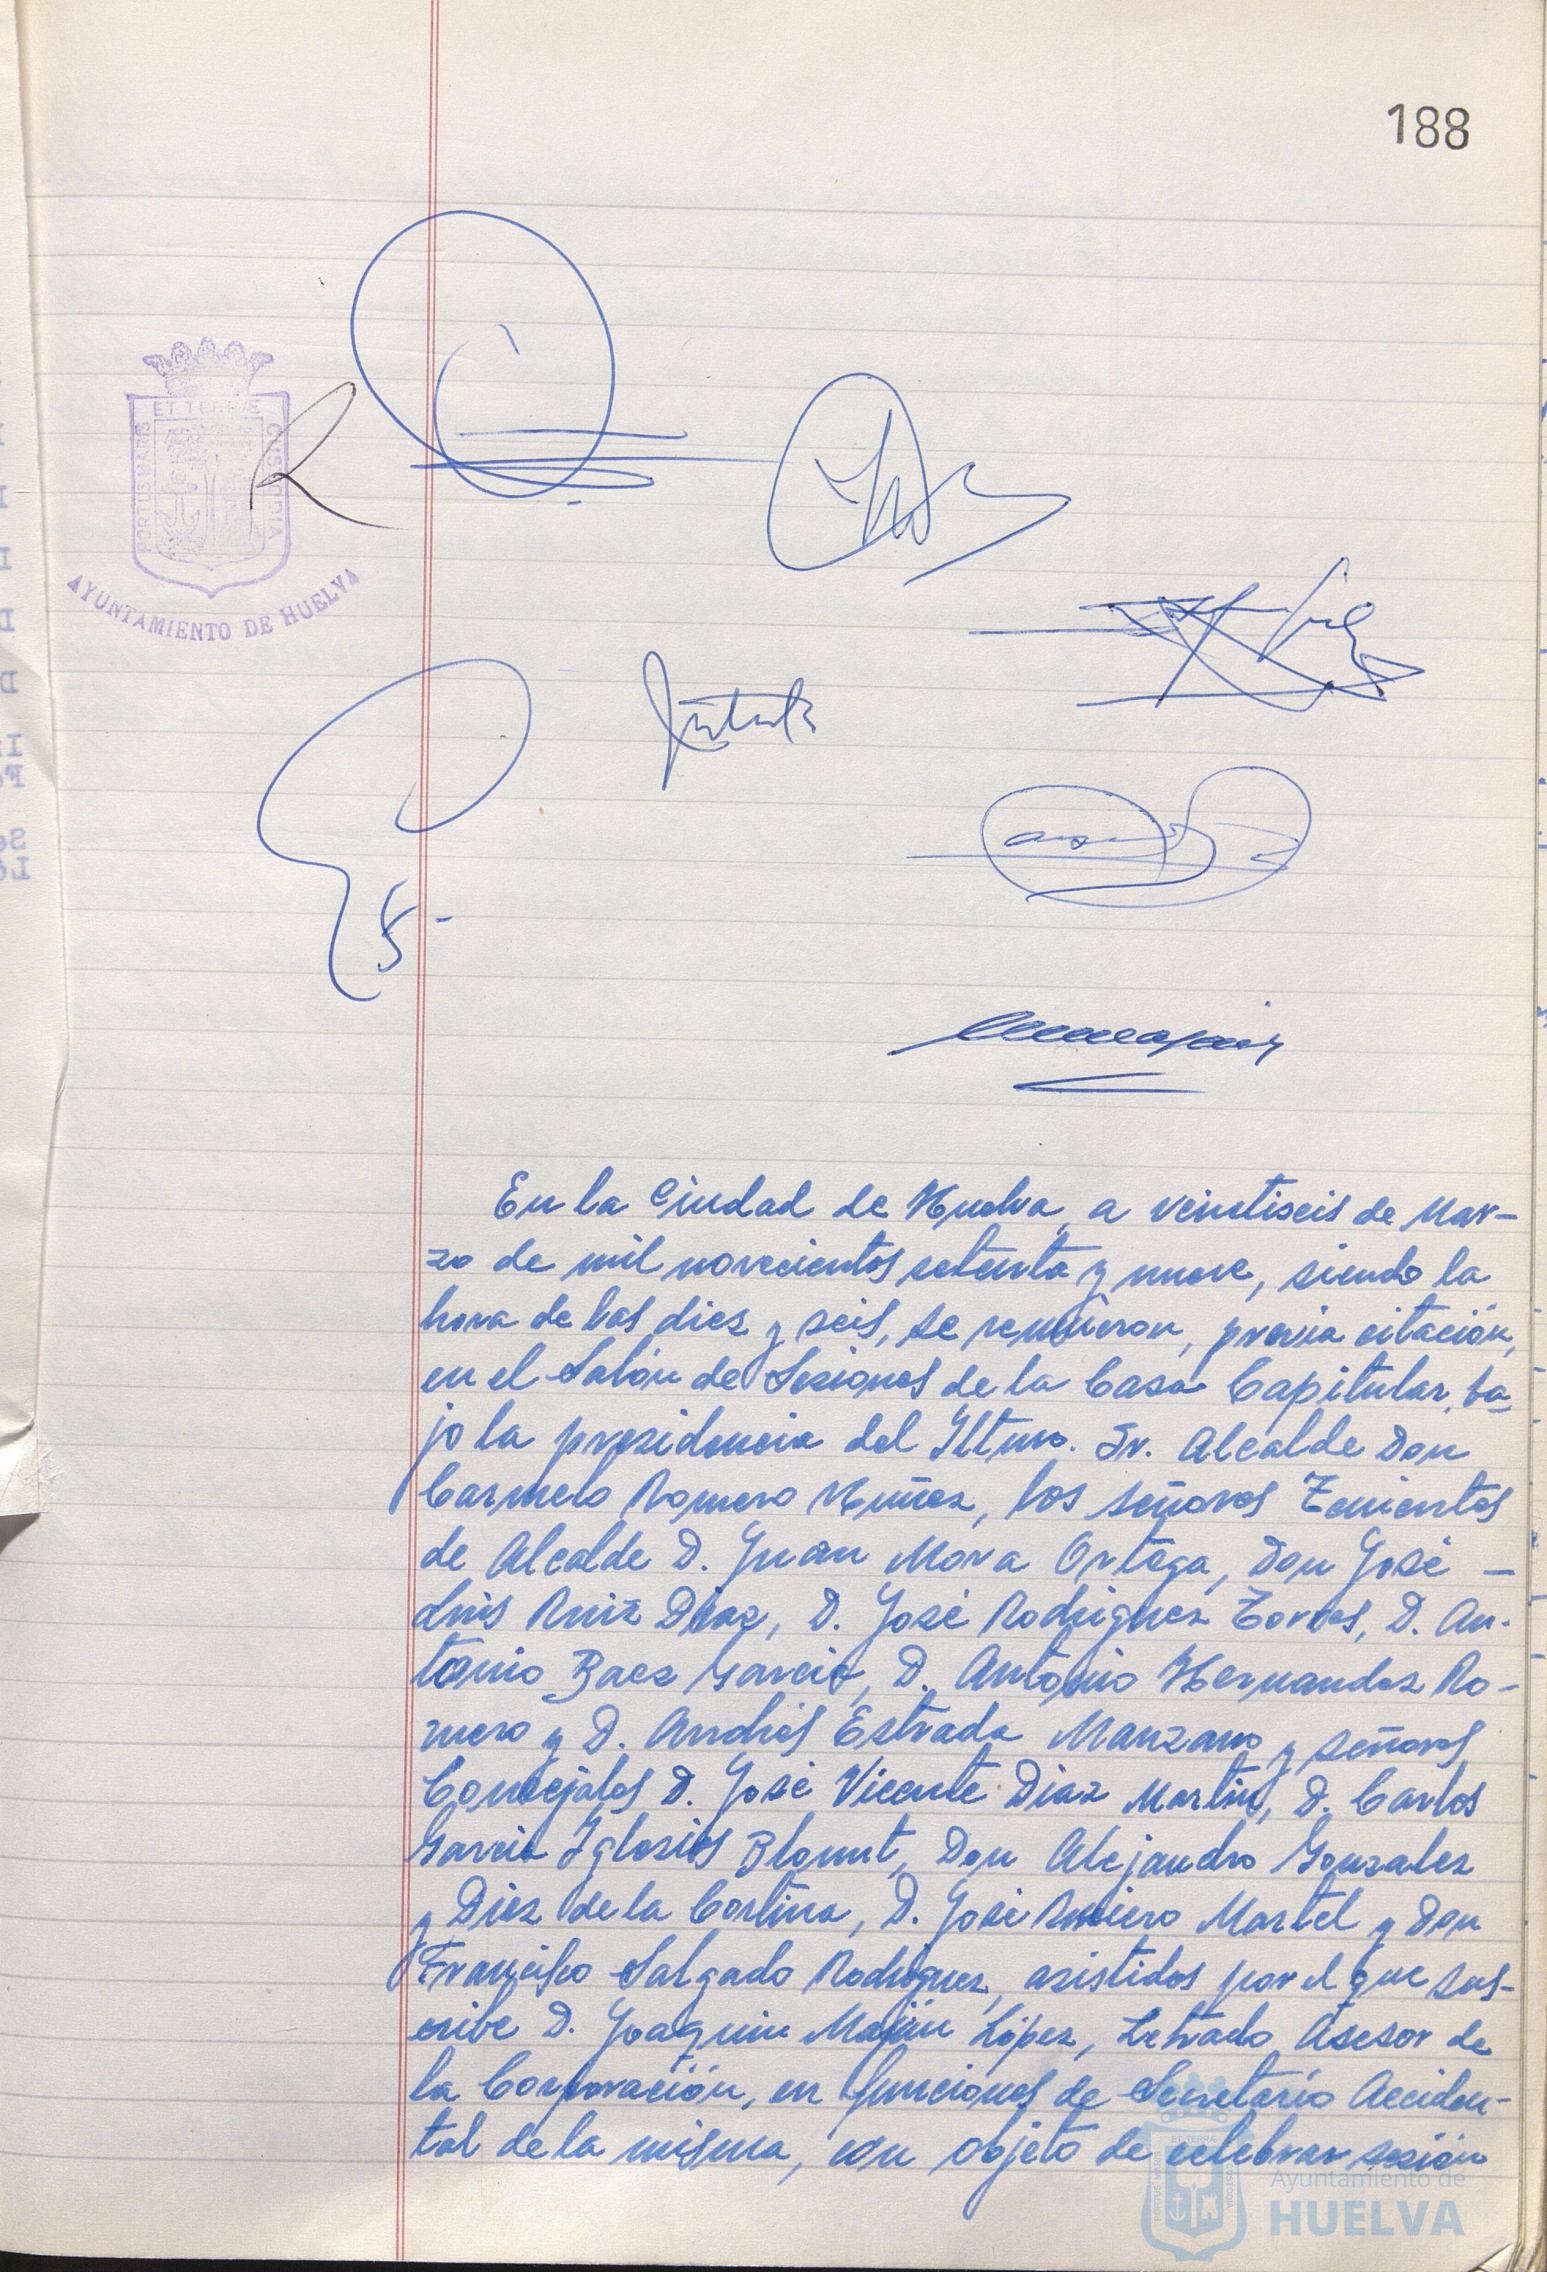 188
ET TERRÆ
PORTUS MARIS
CUSTODIA
AYUNTAMIENTO DE HUELVA
En la Ciudad de Huelva, a veintiseis de Mar-
zo de mil novecientos setenta y nueve, siendo la
hora de las diez y seis, se reunieron, previa citación,
en el Salón de Sesiones de la Casa Capitular, ba-
jo la presidencia del Iltmo. Sr. Alcalde Don
Carmelo Romero Nuñez, los señores Tenientes
de Alcalde D. Juan Mora Ortega, Don José -
Luis Ruiz Diaz, D. José Rodriguez Torres, D. An-
tonio Baez Garcia, D. Antonio Hernandez Ro-
mero y D. Andrés Estrada Manzano y señores
Concejales D. José Vicente Diaz Martin, D. Carlos
Garcia Iglesias Blount, Don Alejandro Gonzalez
y Diez de la Cortina, D. José Martel y Don
Francisco Salgado Rodriguez, asistidos por el que sus-
cribe D. Joaquin López, Letrado Asesor de
la Corporación, en funciones de Secretario Acciden-
tal de la misma, con objeto de celebrar sesión
Ayuntamiento de
HUELVA